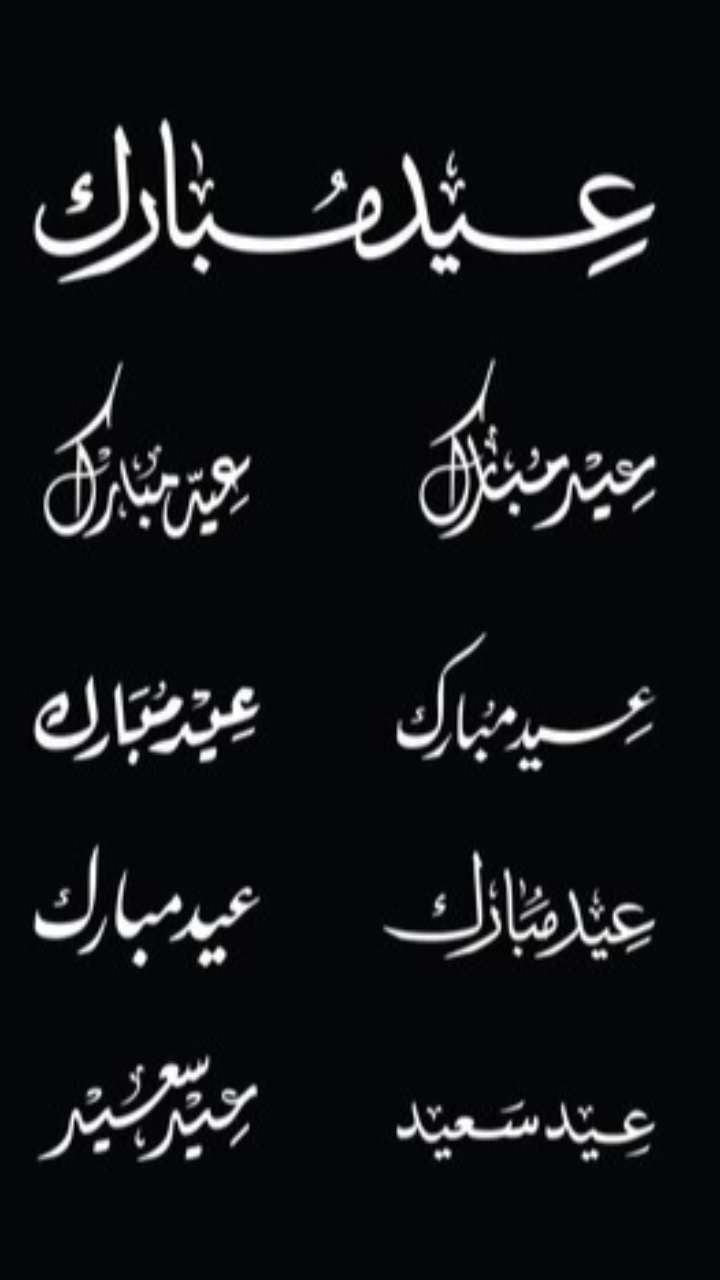 عِيد مُبارك
عِيْد مُبارك
عِيد مُبارك
عِيد مبارك
عِيْد مُبَارك
عِيْد مُبَارك
عيد مبارك
عِيْد سَعيد
عِيْد سعيْد